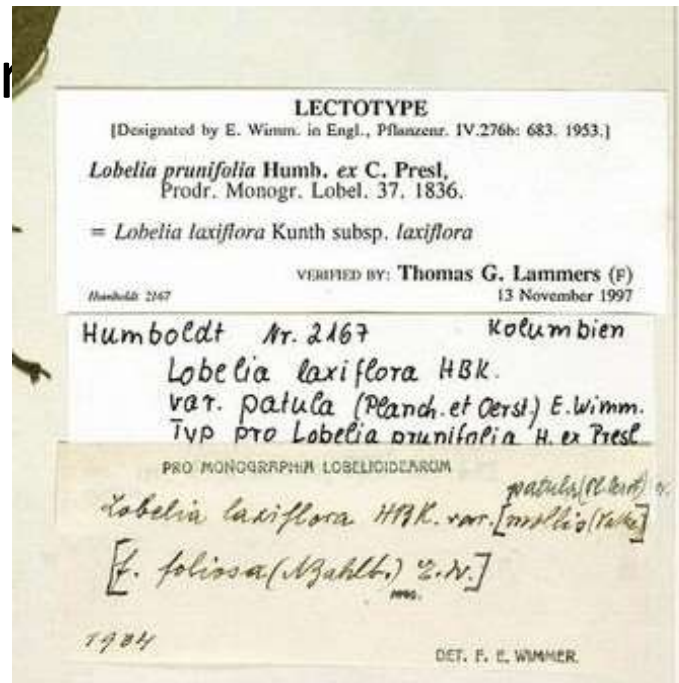 LECTOTYPE
[Designated by E. Wimm. in Engl., Pflanzenr. IV.276b: 683. 1953.]
Lobelia prunifolia Humb. ex C. Presl,
Prodr. Monogr. Lobel. 37. 1836.
= Lobelia laxiflora Kunth subsp. laxiflora
VERIFIED BY: Thomas G. Lammers (F)
Humboldt 2167 13 November 1997
Humboldt Nr. 2167 Kolumbien
Lobelia laxiflora HBK.
var. patula (Planch. et Oerst.) E. Wimm.
Typ pro Lobelia prunifolia H. ex Presl
PRO MONOGRAPHIA LOBELIOIDEARUM
patula
Lobelia laxiflora HBK. var. [mollis
[f. foliosa
1934
DET. F. E. WIMMER.